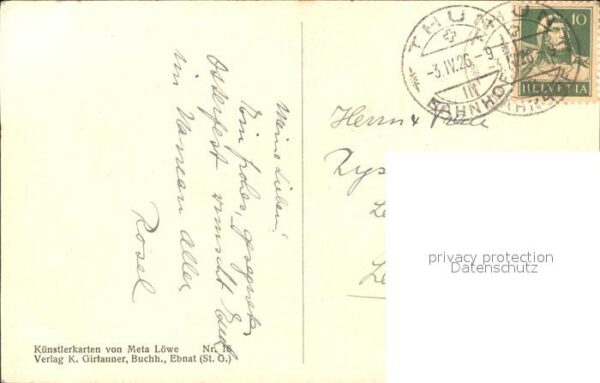 Meine Lieben!
Ein frohes, gesegnetes
Osterfest wünscht Euch
im Namen Aller
Rosel
THUN
-3.IV.26.-9
III
BAHNHOF
10
HELVETIA
Herrn & Frau
privacy protection
Datenschutz
Künstlerkarten von Meta Löwe Nr. 16
Verlag K. Girtanner, Buchh., Ebnat (St. G.)